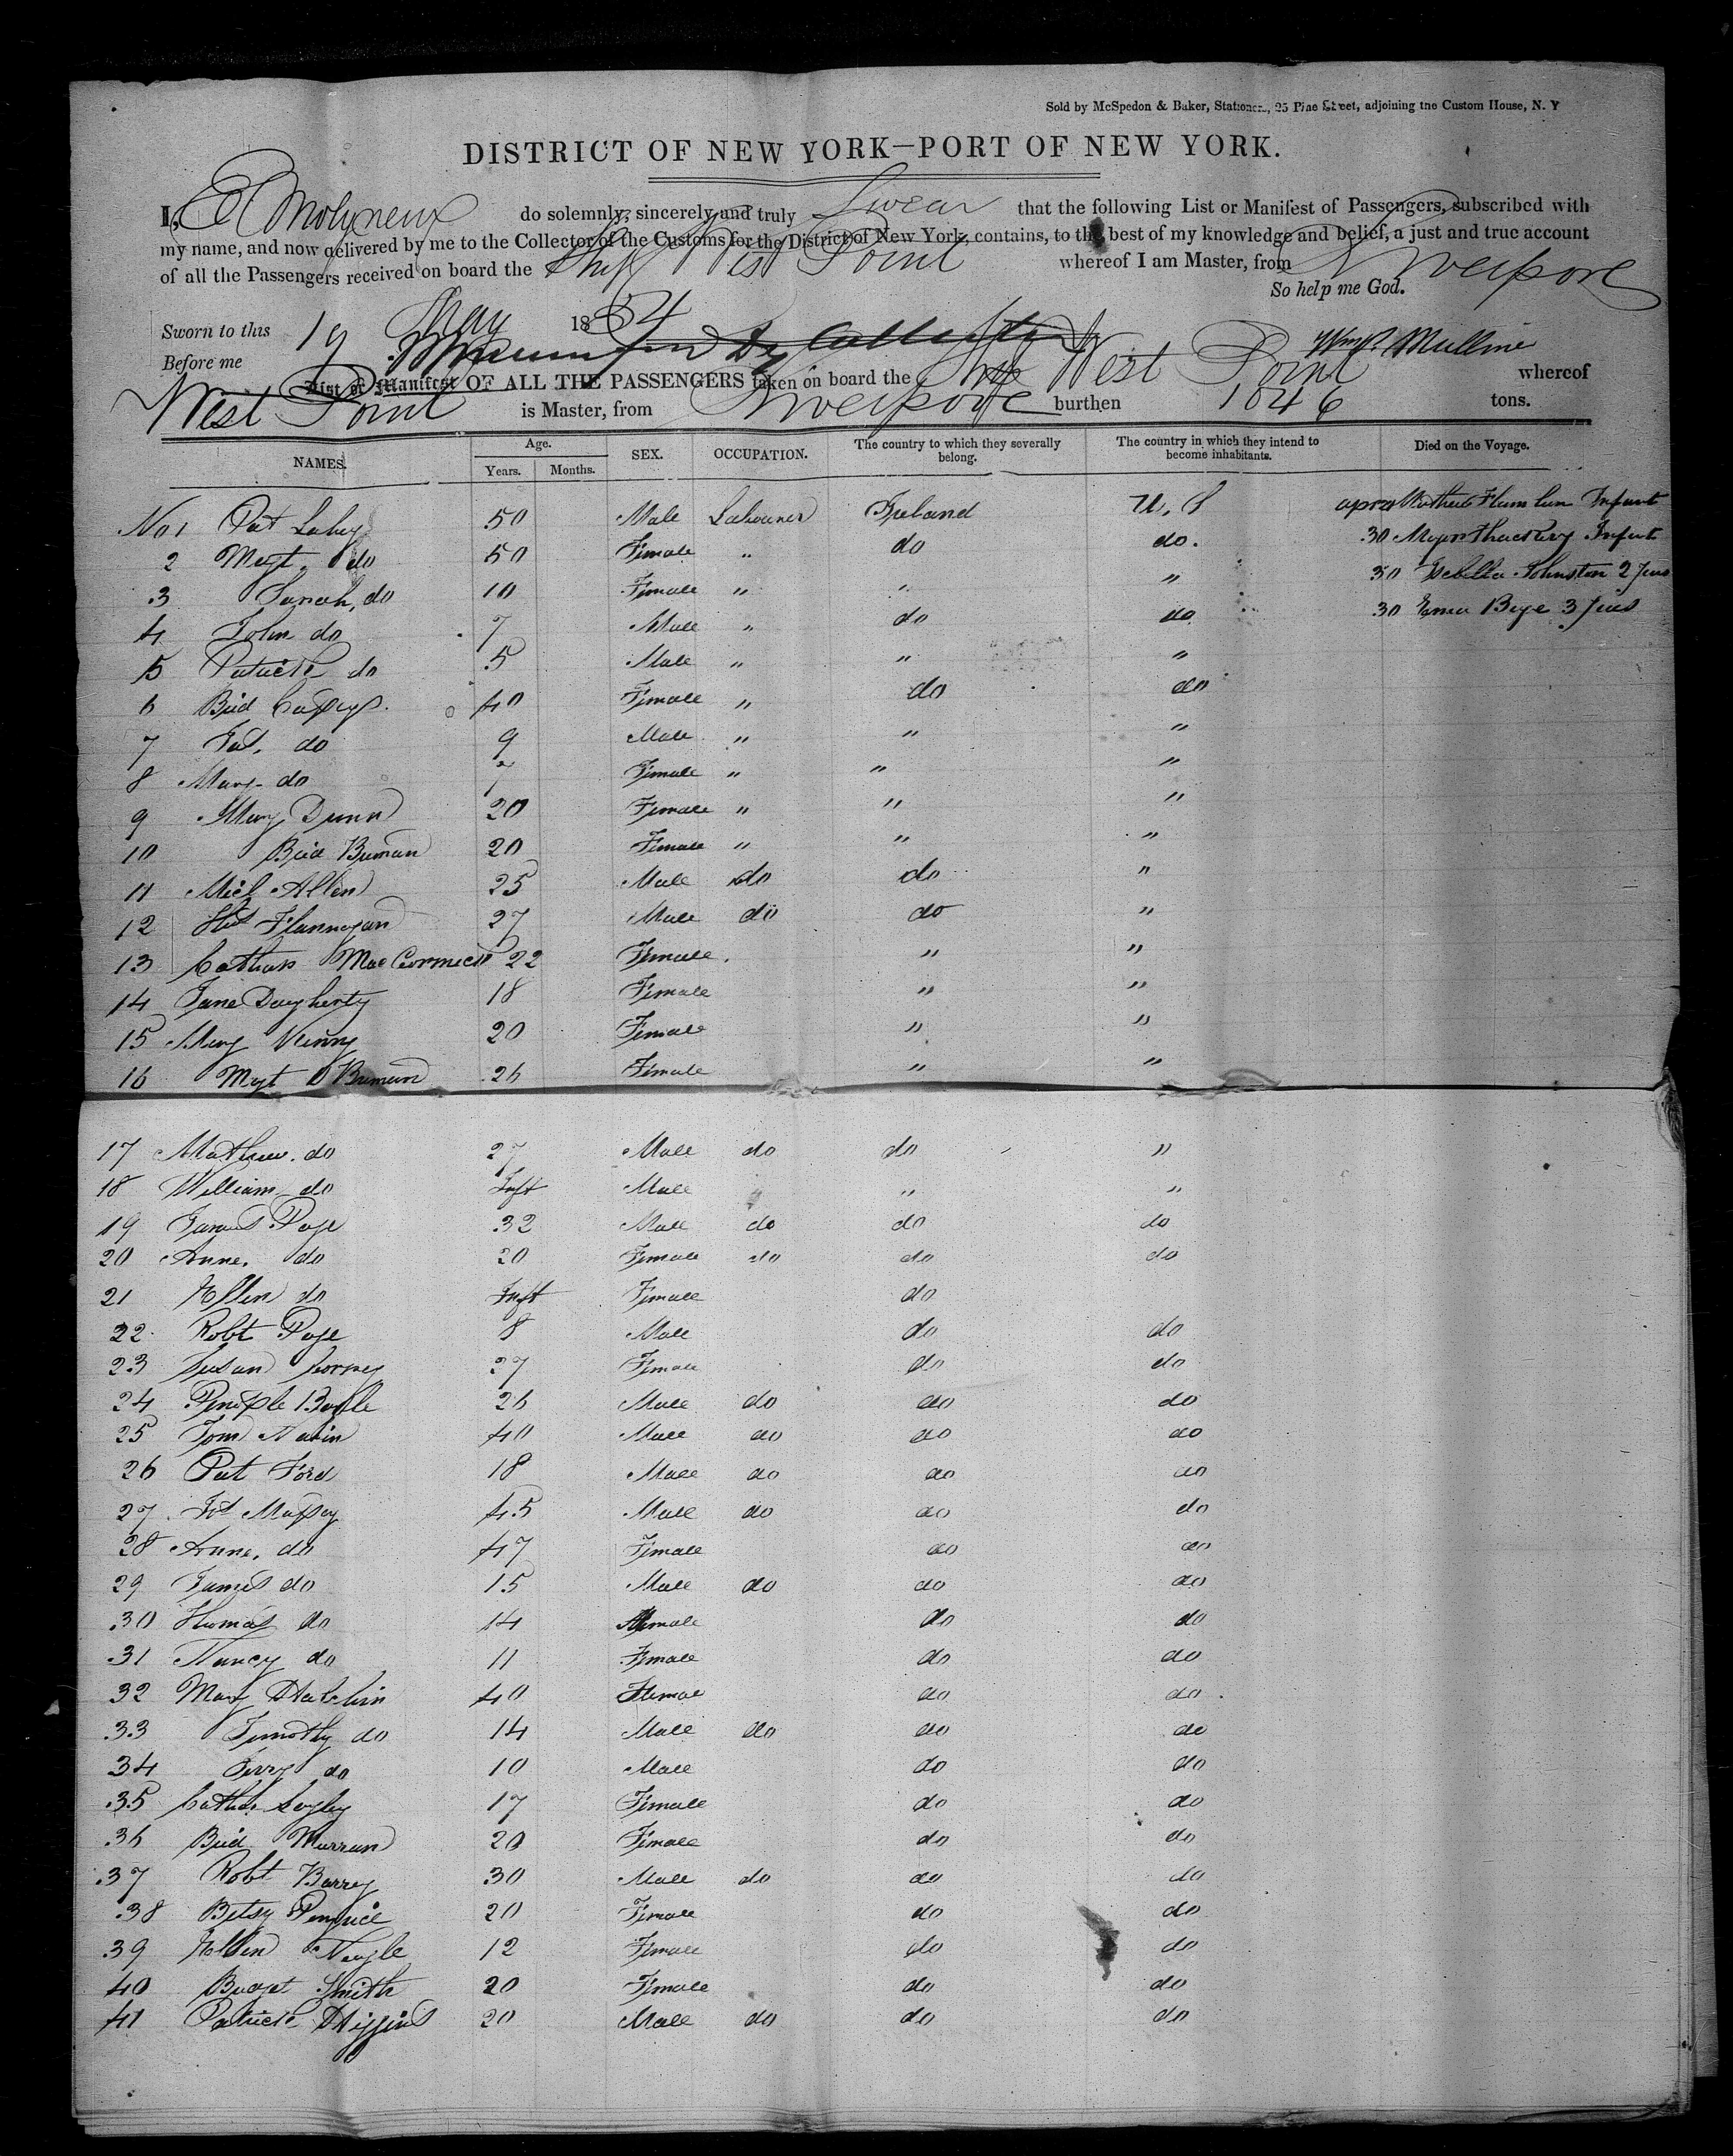 Sold by McSpedon & Baker, Stationers, 25 Pine Street, adjoining the Custom House, N. Y
DISTRICT OF NEW YORK—PORT OF NEW YORK.
I, E Molyneux do solemnly, sincerely and truly Swear that the following List or Manifest of Passengers, subscribed with
my name, and now delivered by me to the Collector of the Customs for the District of New York, contains, to the best of my knowledge and belief, a just and true account
of all the Passengers received on board the Ship West Point whereof I am Master, from Liverpool
So help me God.
Sworn to this 19 May 1854
Before me Wm R Mullin
List or Manifest OF ALL THE PASSENGERS taken on board the Ship West Point whereof
West Point is Master, from Liverpool burthen 1046 tons.
NAMES. Age. Years. Months. SEX. OCCUPATION. The country to which they severally belong. The country in which they intend to become inhabitants. Died on the Voyage.
No 1 Pat Lahy 50 Male Labourer Ireland U. S Infant
2 Mgt. do 50 Female " do do. 30 Infant
3 Sarah, do 10 Female " " " 30 Isebella Johnston 2 years
4 John do 7 Male " do do 30 3 years
5 Patrick do 5 Male " " "
6 Brid 40 Female " do do
7 Pat. do 9 Male " " "
8 Mary do Female " " "
9 Mary Dunn 20 Female " " "
10 Brid 20 Female " " "
11 Mich Allen 25 Male do do "
12 Flannagan 27 Male do do "
13 MacCormick 22 Female. " "
14 Jane Daugherty 18 Female " "
15 Mary Kenny 20 Female " "
16 Mgt 26 Female " "
17 Mathew. do 27 Male do do "
18 William do Inft Male " "
19 James Page 32 Male do do do
20 Anne. do 20 Female do do do
21 Ellen do Inft Female do
22 Robt Page 8 Male do do
23 Susan 27 Female do do
24 Boyle 26 Male do do do
25 Tom 40 Male do do do
26 Pat Ford 18 Male do do do
27 Massey 45 Male do do do
28 Anne. do 47 Female do do
29 James do 15 Male do do do
30 Thomas do 14 do do
31 Nancy do 11 Female do do
32 Mary 40 do do
33 Timothy do 14 Male do do do
34 Jerry do 10 Male do do
35 17 Female do do
36 Brid Murran 20 Female do do
37 Robt Barrey 30 Male do do do
38 Betsy 20 Female do do
39 Ellen Nagle 12 Female do do
40 Smith 20 Female do do
41 Patrick Higgins 20 Male do do do